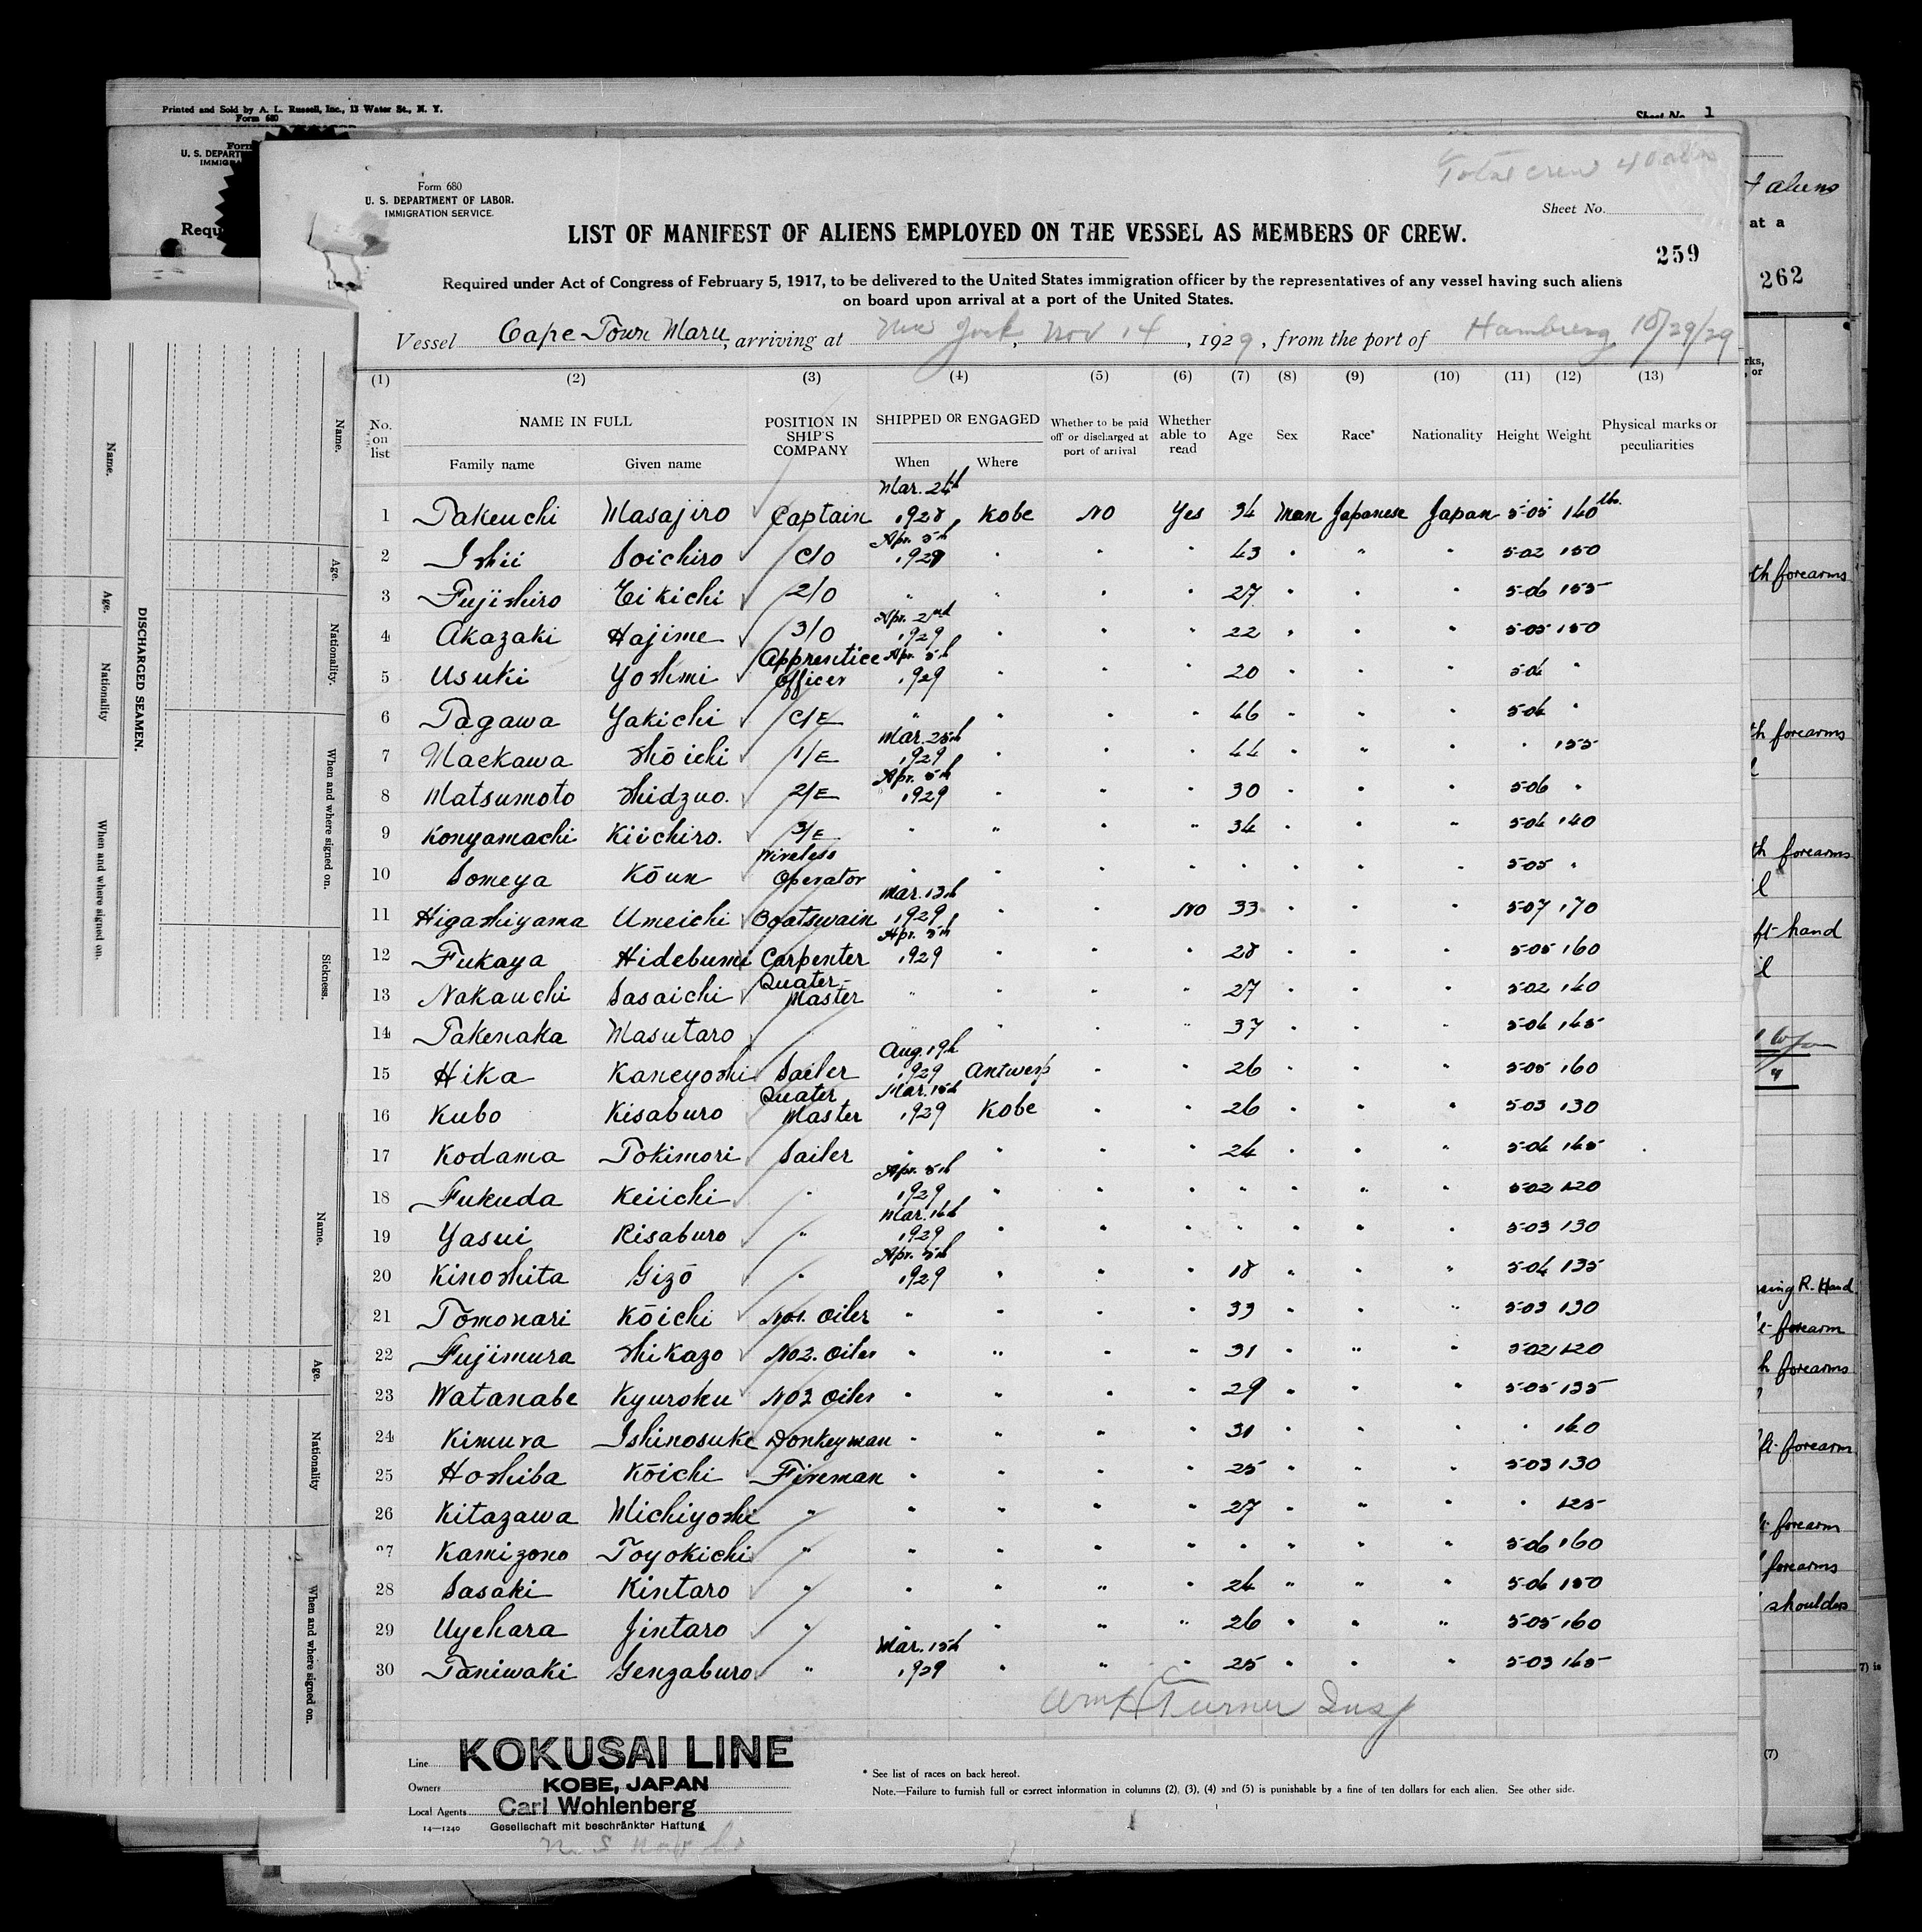 Printed and Sold by A. L. Russell, Inc., 13 Water St., N. Y.
Form 680
Sheet No. 1
U. S. DEPART
IMMIGRA
Requ
Total crew 40
Form 680
U. S. DEPARTMENT OF LABOR.
IMMIGRATION SERVICE.
Sheet No.
LIST OF MANIFEST OF ALIENS EMPLOYED ON THE VESSEL AS MEMBERS OF CREW.
259
Required under Act of Congress of February 5, 1917, to be delivered to the United States immigration officer by the representatives of any vessel having such aliens
on board upon arrival at a port of the United States.
Vessel Cape Town Maru, arriving at New York, Nov 14, 1929, from the port of Hamburg 10/29/29
(1) (2) (3) (4) (5) (6) (7) (8) (9) (10) (11) (12) (13)
No. on list NAME IN FULL Family name Given name POSITION IN SHIP'S COMPANY SHIPPED OR ENGAGED When Where Whether to be paid off or discharged at port of arrival Whether able to read Age Sex Race* Nationality Height Weight Physical marks or peculiarities
1 Takeuchi Masajiro Captain Mar. 24th 1928 Kobe No Yes 34 Man Japanese Japan 5-05 140 lbs.
2 Ishii Soichiro C/O Apr. 5th 1929 " " " 43 " " " 5-02 150
3 Fujishiro Eikichi 2/O " " " " 27 " " " 5-06 155
4 Akazaki Hajime 3/O Apr. 2nd 1929 " " " 22 " " " 5-05 150
5 Usuki Yoshmi Apprentice Officer Apr. 5th 1929 " " " 20 " " " 5-04 "
6 Tagawa Yakichi C/E " " " " 46 " " " 5-04 "
7 Maekawa Shōichi 1/E Mar. 25th 1929 " " " 44 " " " " 155
8 Matsumoto Shidzuo. 2/E Apr. 5th 1929 " " " 30 " " " 5-06 "
9 Konyamachi Kiichiro. 3/E " " " " 34 " " " 5-04 140
10 Someya Kōun Wireless Operator " " " " " " " " 5-05 "
11 Higashiyama Umeichi Boatswain Mar. 13th 1929 " " No 33 " " " 5-07 170
12 Fukaya Hidebumi Carpenter Apr. 5th 1929 " " " 28 " " " 5-05 160
13 Nakauchi Sasaichi Quater Master " " " " 27 " " " 5-02 140
14 Takenaka Masutaro " " " " " 37 " " " 5-04 145
15 Hika Kaneyoshi Sailer Aug. 19th 1929 Antwerp " " 26 " " " 5-05 160
16 Kubo Kisaburo Quater Master Mar. 15th 1929 Kobe " " 26 " " " 5-03 130
17 Kodama Tokimori Sailer " " " " 24 " " " 5-04 145
18 Fukuda Keiichi " Apr. 5th 1929 " " " " " " " 5-02 120
19 Yasui Risaburo " Mar. 16th 1929 " " " " " " " 5-03 130
20 Kinoshita Gizō " Apr. 5th 1929 " " " 18 " " " 5-04 135
21 Tomonari Kōichi No1. Oiler " " " " 33 " " " 5-03 130
22 Fujimura Shikazo No2. Oiler " " " " 31 " " " 5-02 120
23 Watanabe Kyuroku No3 Oiler " " " " 29 " " " 5-05 135
24 Kimura Ishinosuke Donkeyman " " " " 31 " " " " 140
25 Hoshiba Kōichi Fireman " " " " 25 " " " 5-03 130
26 Kitazawa Michiyoshi " " " " " 27 " " " " 125
27 Kamizono Toyokichi " " " " " " " " " 5-06 160
28 Sasaki Kintaro " " " " " 24 " " " 5-06 150
29 Uyehara Jintaro " " " " " 26 " " " 5-05 160
30 Taniwaki Genzaburo " Mar. 15th 1929 " " " 25 " " " 5-03 145
Wm H Turner Insp
Line KOKUSAI LINE
Owners KOBE, JAPAN
Local Agents Carl Wohlenberg
14—1240 Gesellschaft mit beschränkter Haftung
* See list of races on back hereof.
Note.—Failure to furnish full or correct information in columns (2), (3), (4) and (5) is punishable by a fine of ten dollars for each alien. See other side.
DISCHARGED SEAMEN.
Name.
Age.
Nationality
When and where signed on.
Name.
Age.
Nationality.
When and where signed on.
Sickness.
Name.
Age.
Nationality
When and where signed on.
aliens
at a
262
rks,
or
th forearms
th forearms
th forearms
ft hand
sing R. Hand
forearm
h forearms
ft. forearm
forearm
forearms
shoulders
7) is
(7)